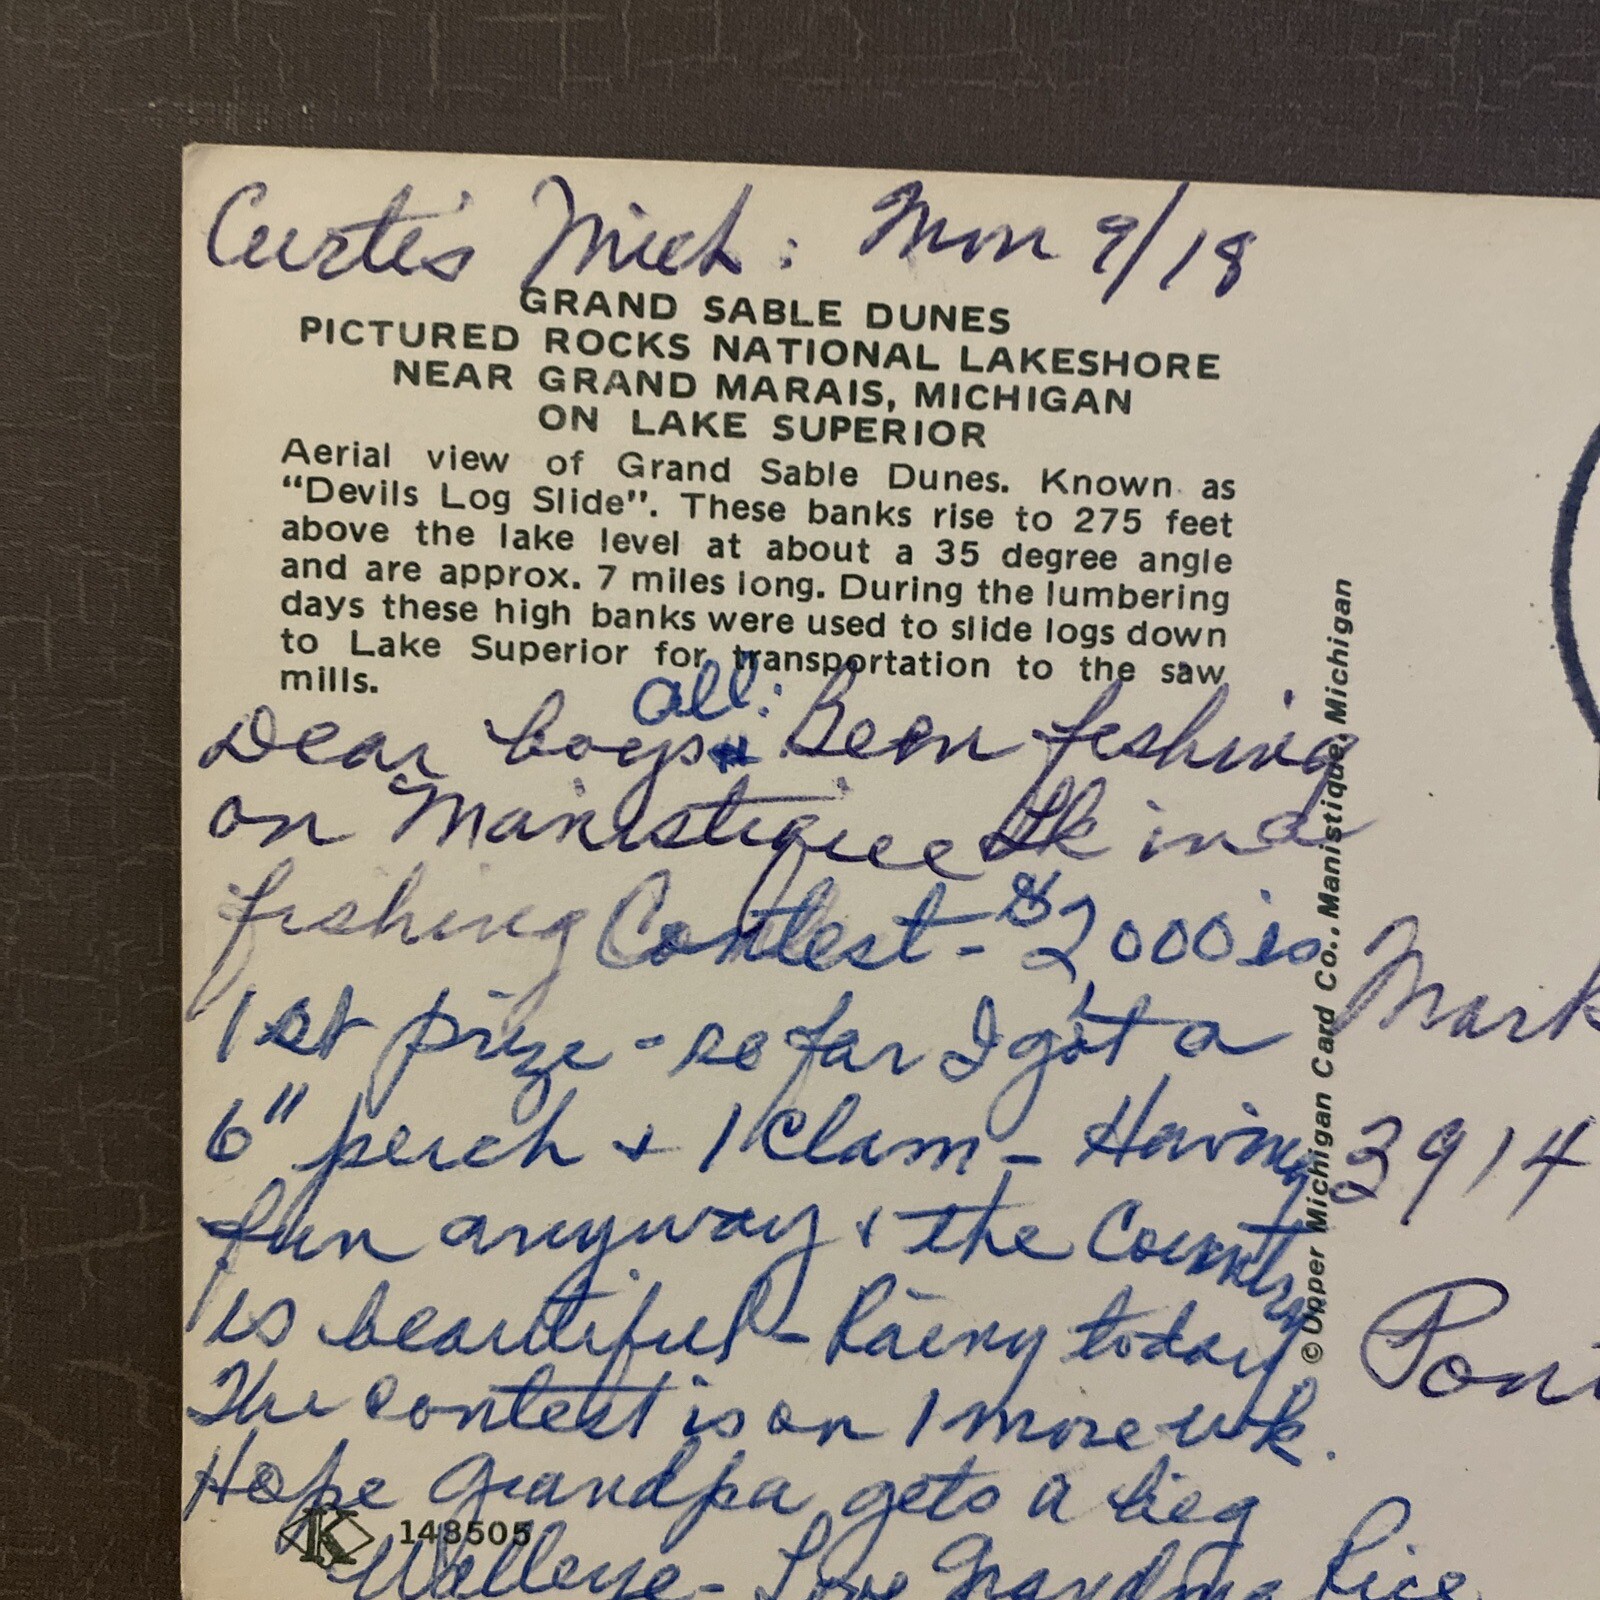 Curtis Mich: Mon 9/18
GRAND SABLE DUNES
PICTURED ROCKS NATIONAL LAKESHORE
NEAR GRAND MARAIS, MICHIGAN
ON LAKE SUPERIOR
Aerial view of Grand Sable Dunes. Known as
"Devils Log Slide". These banks rise to 275 feet
above the lake level at about a 35 degree angle
and are approx. 7 miles long. During the lumbering
days these high banks were used to slide logs down
to Lake Superior for transportation to the saw
mills.
all:
Dear boys & Been fishing
on Manistique Lk in a
fishing Contest - $2000 is
1st prize - so far I got a
6" perch + 1 Clam - Having
fun anyway + the Country
is beautiful - Rainy today
The contest is on 1 more wk.
Hope Grandpa gets a big
Walleye - Love Grandma Rice
K 148505
© Upper Michigan Card Co., Manistique, Michigan
Mark
3914
Pont